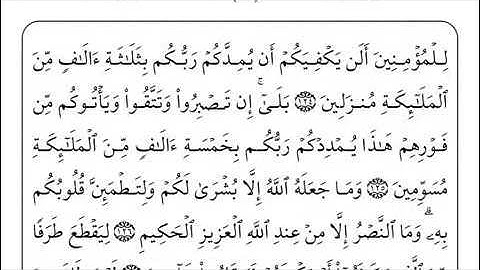 لِلْمُؤْمِنِينَ أَلَن يَكْفِيَكُمْ أَن يُمِدَّكُمْ رَبُّكُم بِثَلَٰثَةِ ءَالَٰفٍ مِّنَ
ٱلْمَلَٰٓئِكَةِ مُنزَلِينَ ١٢٤ بَلَىٰٓ ۚ إِن تَصْبِرُوا۟ وَتَتَّقُوا۟ وَيَأْتُوكُم مِّن
فَوْرِهِمْ هَٰذَا يُمْدِدْكُمْ رَبُّكُم بِخَمْسَةِ ءَالَٰفٍ مِّنَ ٱلْمَلَٰٓئِكَةِ
مُسَوِّمِينَ ١٢٥ وَمَا جَعَلَهُ ٱللَّهُ إِلَّا بُشْرَىٰ لَكُمْ وَلِتَطْمَئِنَّ قُلُوبُكُم
بِهِۦ ۗ وَمَا ٱلنَّصْرُ إِلَّا مِنْ عِندِ ٱللَّهِ ٱلْعَزِيزِ ٱلْحَكِيمِ ١٢٦ لِيَقْطَعَ طَرَفًا